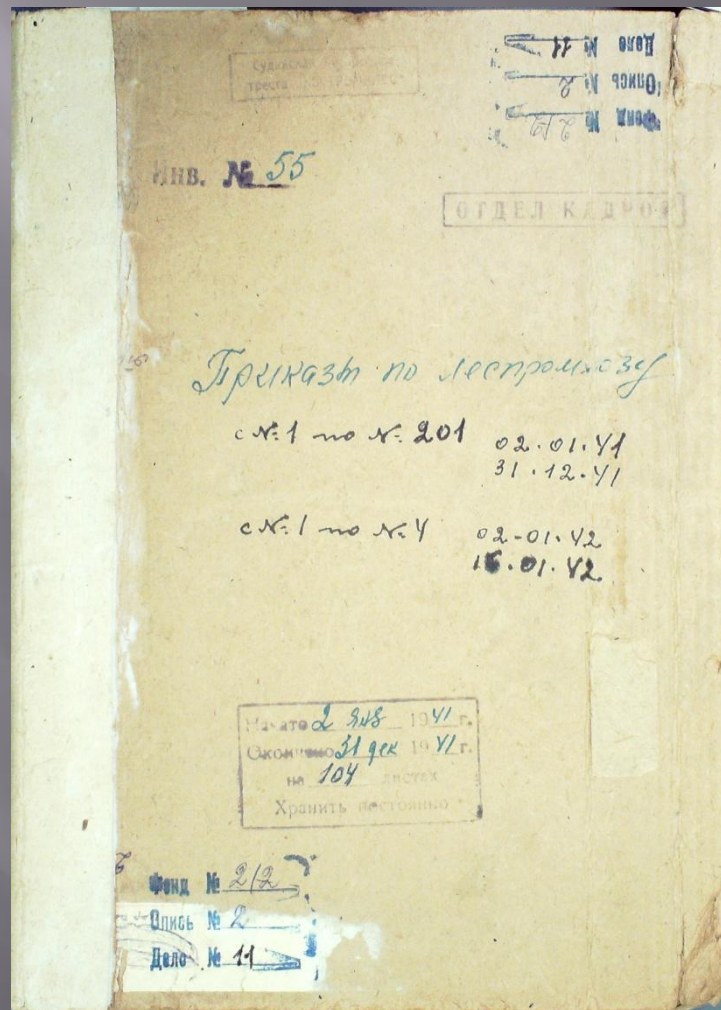 Дело № 11
Опись № 2
Фонд № 2/2
Инв. № 55
ОТДЕЛ КАДРОВ
Приказы по леспромхозу
с №1 по №201 02.01.41
31.12.41
с №1 по №4 02-01.42
16.01.42
Начато 2 янв 1941 г.
Окончено 31 дек 1941 г.
на 104 листах
Хранить постоянно
Фонд № 2/2
Опись № 2
Дело № 11